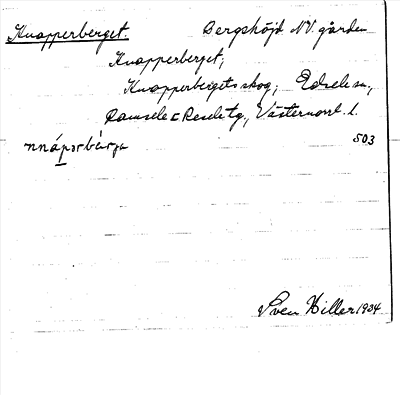 Knapperberget. Bergshöjd NV. gården
Knapperberget,
Knapperbergets skog, Edsele sn,
Ramsele o Resele tg, Västernorrl. l.
503
Sven Hiller 1934